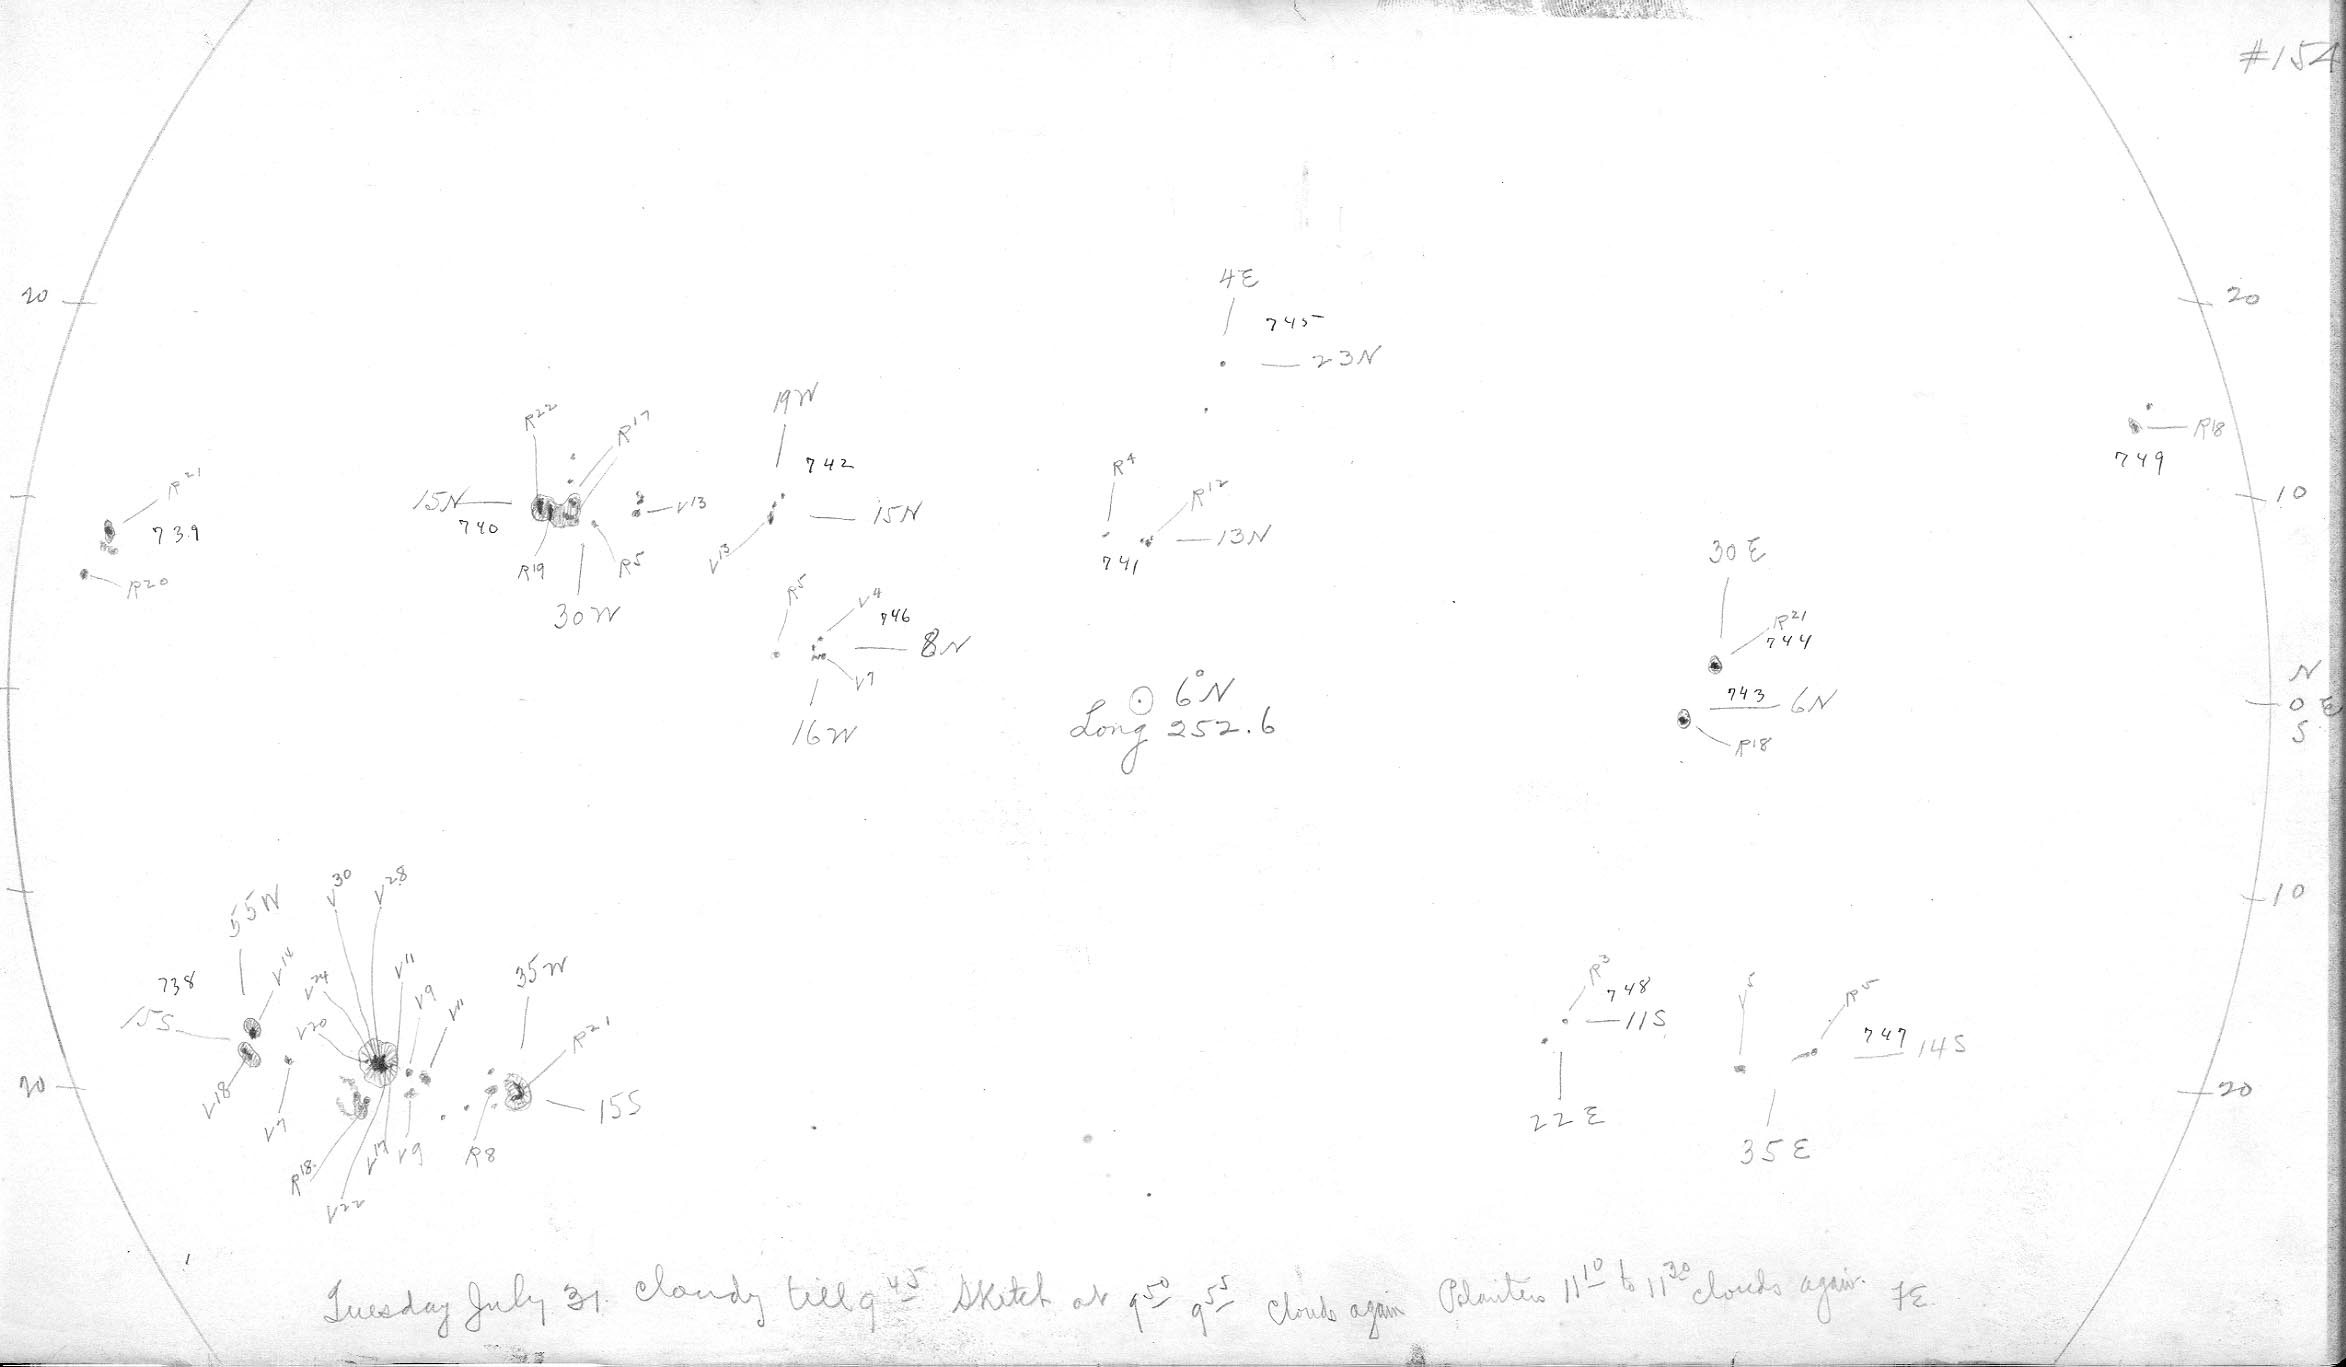 #154
4E
20
20
745
23N
19W
R22
R17
R18
742
R4
749
R21
R12
10
15N
V13
15N
740
739
13N
741
30E
V13
R19
R5
R20
R5
V4
30W
R21
746
744
8N
V7
N
⊙ 6°N
743
6N
0 E
16W
Long 252.6
S
R18
V30
V28
10
55W
738
V14
V24
V11
35W
R3
V5
R5
V9
748
V11
15S
V20
11S
R21
747
14S
20
20
V18
15S
V7
22E
V17
V9
R8
35E
R18
V22
Tuesday July 31. Cloudy till 9 45 Sketch at 9 50 9 55 clouds again Polarities 11 10 to 11 30 clouds again. FE